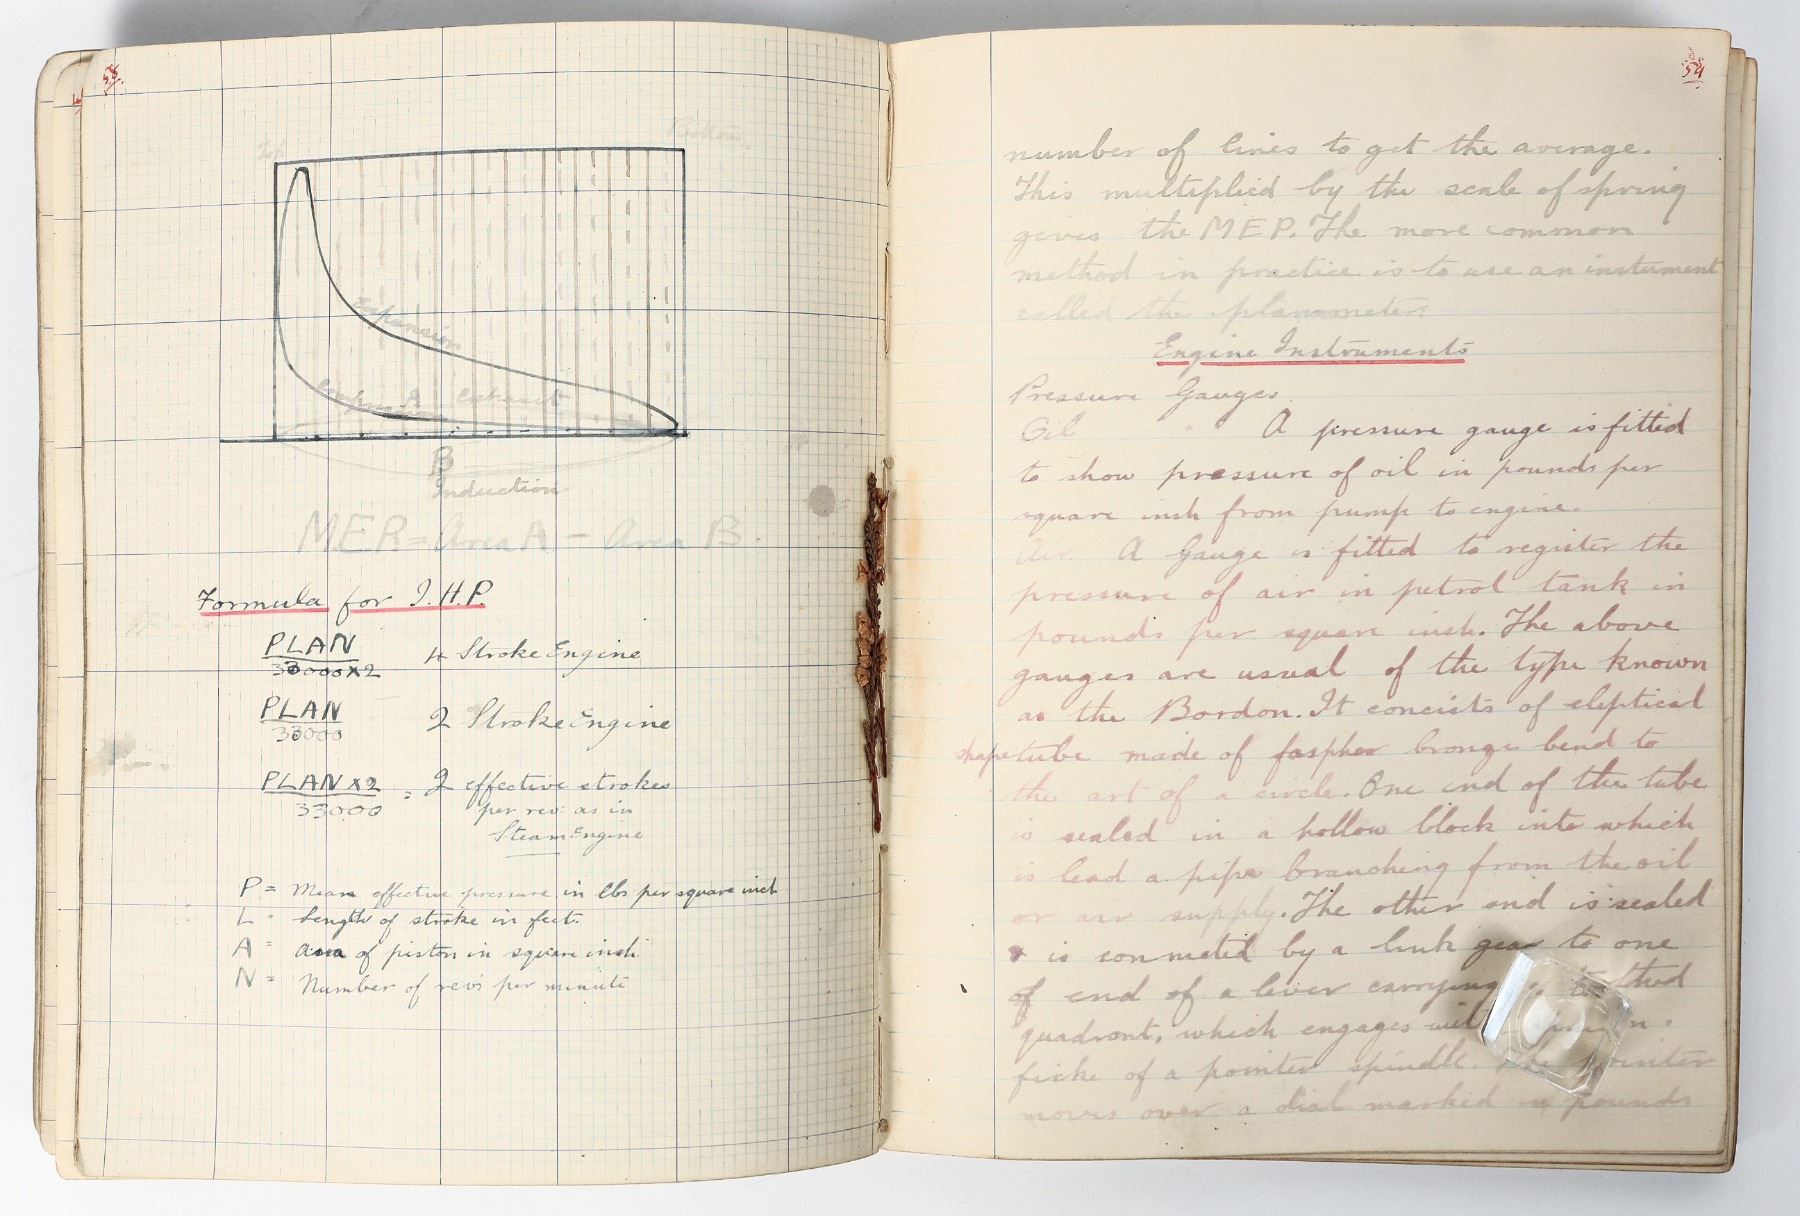 58.
Top
Bottom
Expansion
Compression A Exhaust
B
Induction
M.E.P. = Area A - Area B.
Formula for I.H.P.
PLAN
33000x2
4 Stroke Engine
PLAN
33000
2 Stroke Engine
PLAN x2
33000
= 2 effective strokes
per rev: as in
Steam Engine
P = Mean effective pressure in lbs per square inch
L = Length of stroke in feet.
A = area of piston in square inch
N = Number of revs per minute
59
number of lines to get the average.
This multiplied by the scale of spring
gives the M E P. The more common
method in practice is to use an insterment
called the planometer.
Engine Instruments
Pressure Gauges
Oil A pressure gauge is fitted
to show pressure of oil in pounds per
square inch from pump to engine.
Air A Gauge is fitted to register the
pressure of air in petrol tank in
pounds per square inch. The above
gauges are usual of the type known
as the Bordon. It concists of eleptical
shape tube made of fosphor bronze bend to
the art of a circle. One end of the tube
is sealed in a hollow block into which
is lead a pipe branching from the oil
or air supply. The other end is sealed
is connected by a link gear to one
of end of a lever carrying
quadront, which engages
of a pointer spindle. The pointer
moves over a dial marked in pounds